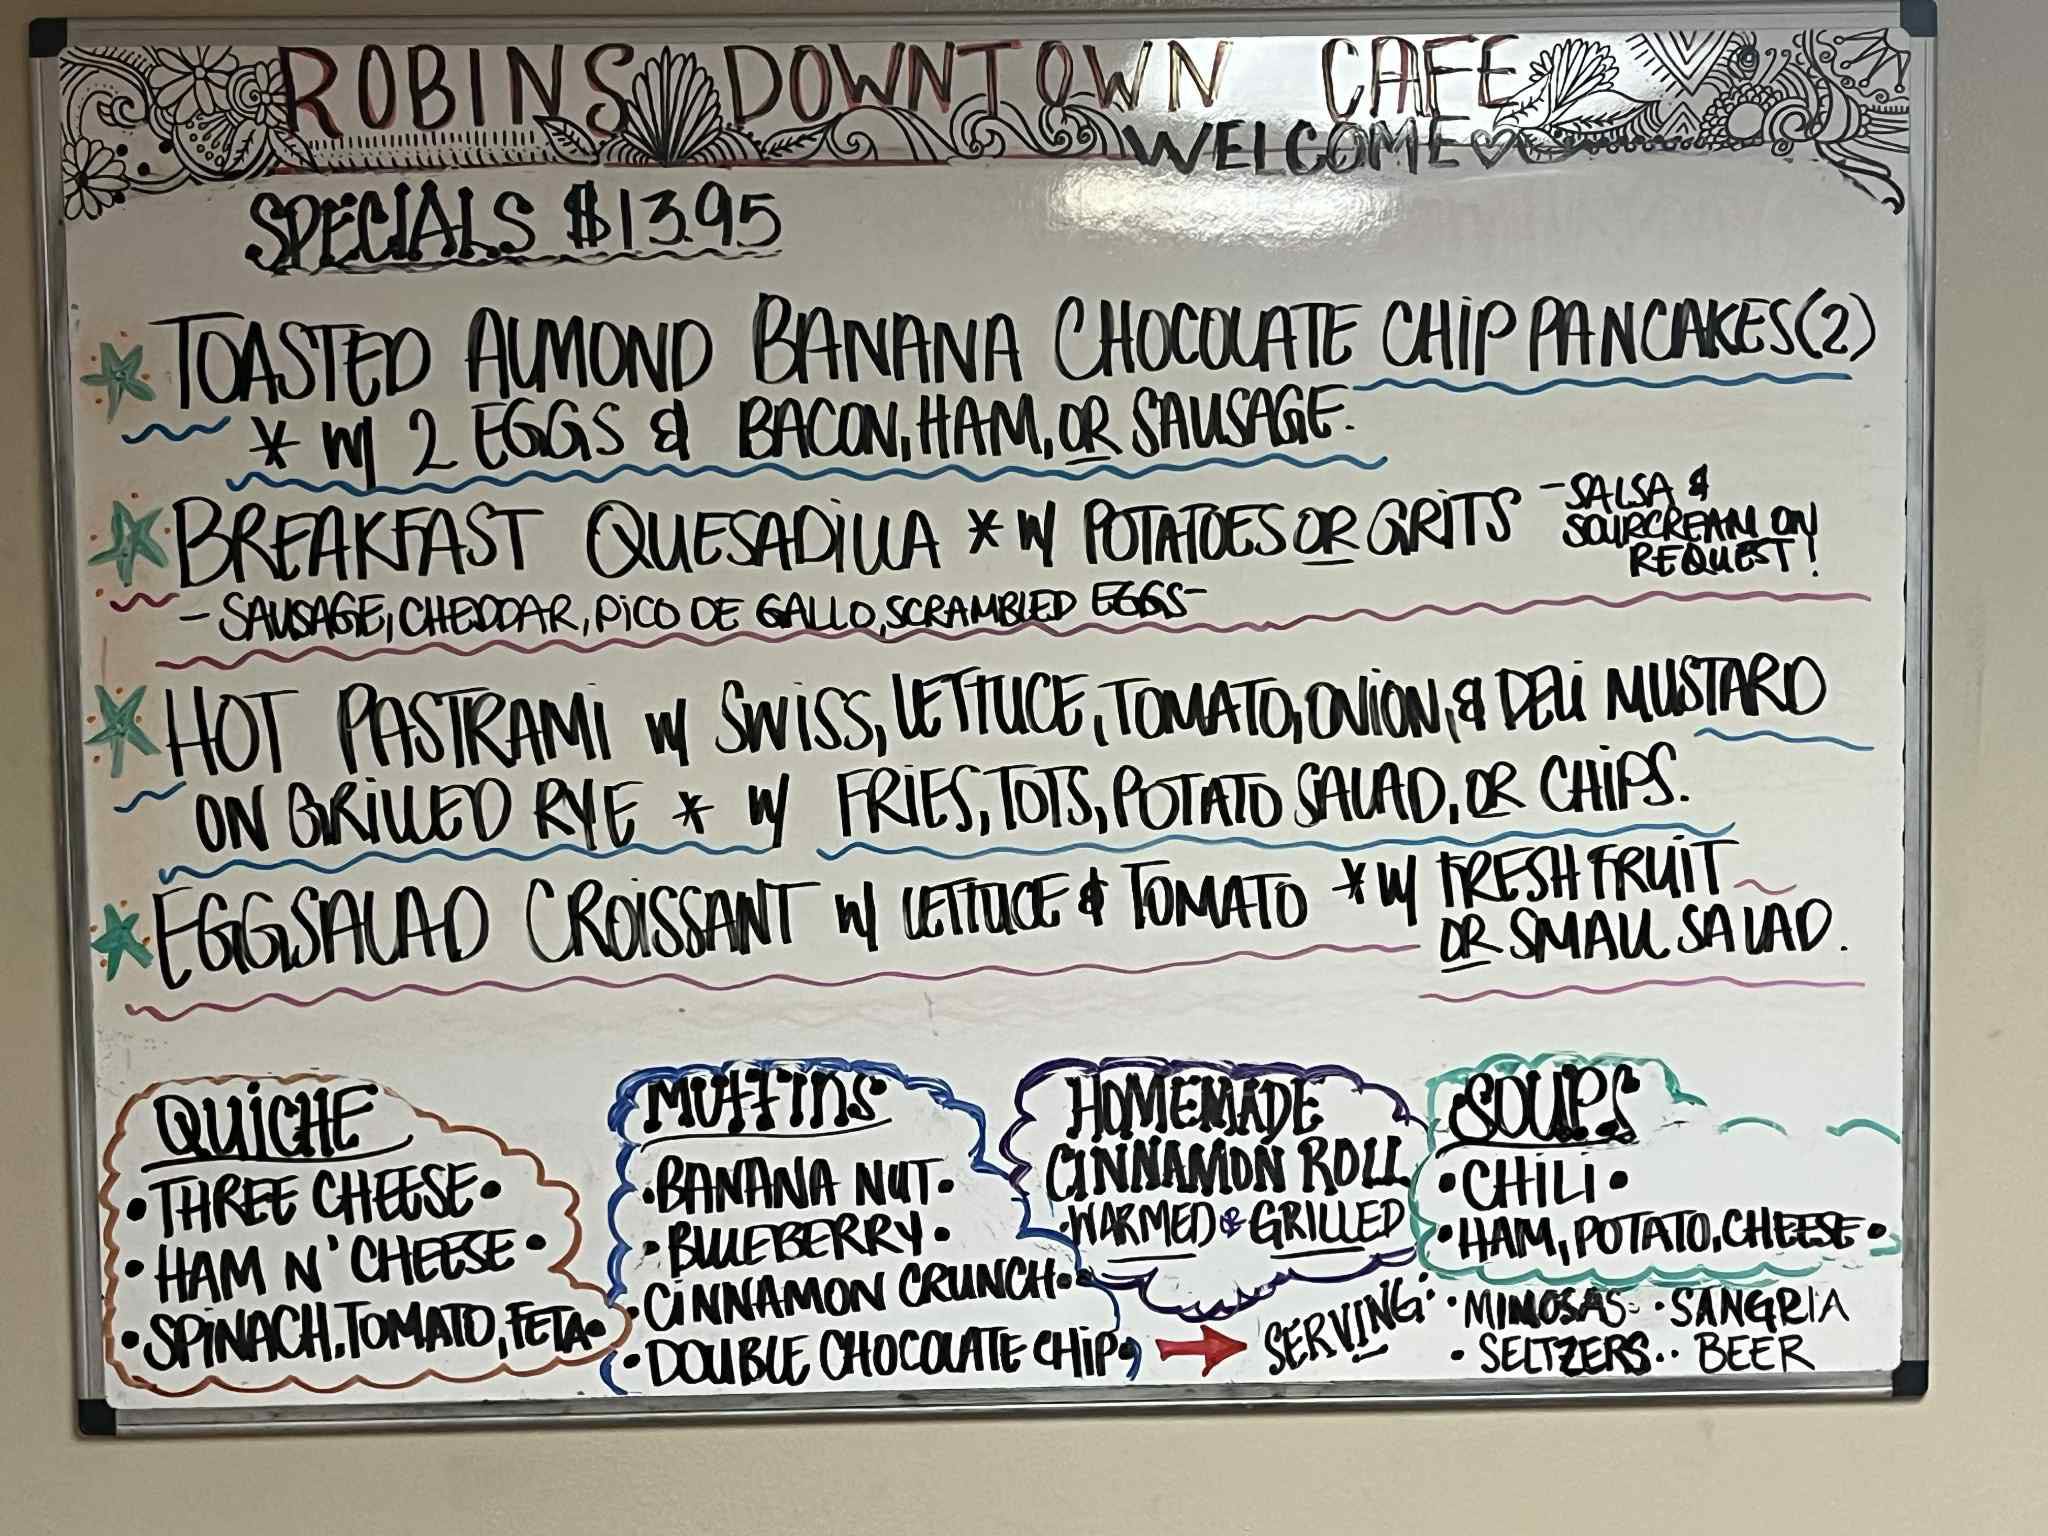 ROBINS DOWNTOWN CAFE
WELCOME
SPECIALS $13.95
TOASTED ALMOND BANANA CHOCOLATE CHIP PANCAKES (2)
* W/ 2 EGGS & BACON, HAM, OR SAUSAGE.
BREAKFAST QUESADILLA * W/ POTATOES OR GRITS
- SALSA &
SOURCREAM ON
REQUEST!
- SAUSAGE, CHEDDAR, PICO DE GALLO, SCRAMBLED EGGS -
HOT PASTRAMI W/ SWISS, LETTUCE, TOMATO, ONION, & DELI MUSTARD
ON GRILLED RYE * W/ FRIES, TOTS, POTATO SALAD, OR CHIPS.
EGGSALAD CROISSANT W/ LETTUCE & TOMATO * W/ FRESH FRUIT
OR SMALL SALAD.
QUICHE
• THREE CHEESE •
• HAM N' CHEESE •
• SPINACH, TOMATO, FETA •
MUFFINS
• BANANA NUT •
• BLUEBERRY •
• CINNAMON CRUNCH •
• DOUBLE CHOCOLATE CHIP •
HOMEMADE
CINNAMON ROLL
• WARMED & GRILLED
SOUPS
• CHILI •
• HAM, POTATO, CHEESE •
SERVING:
• MIMOSAS • • SANGRIA
• SELTZERS • • BEER